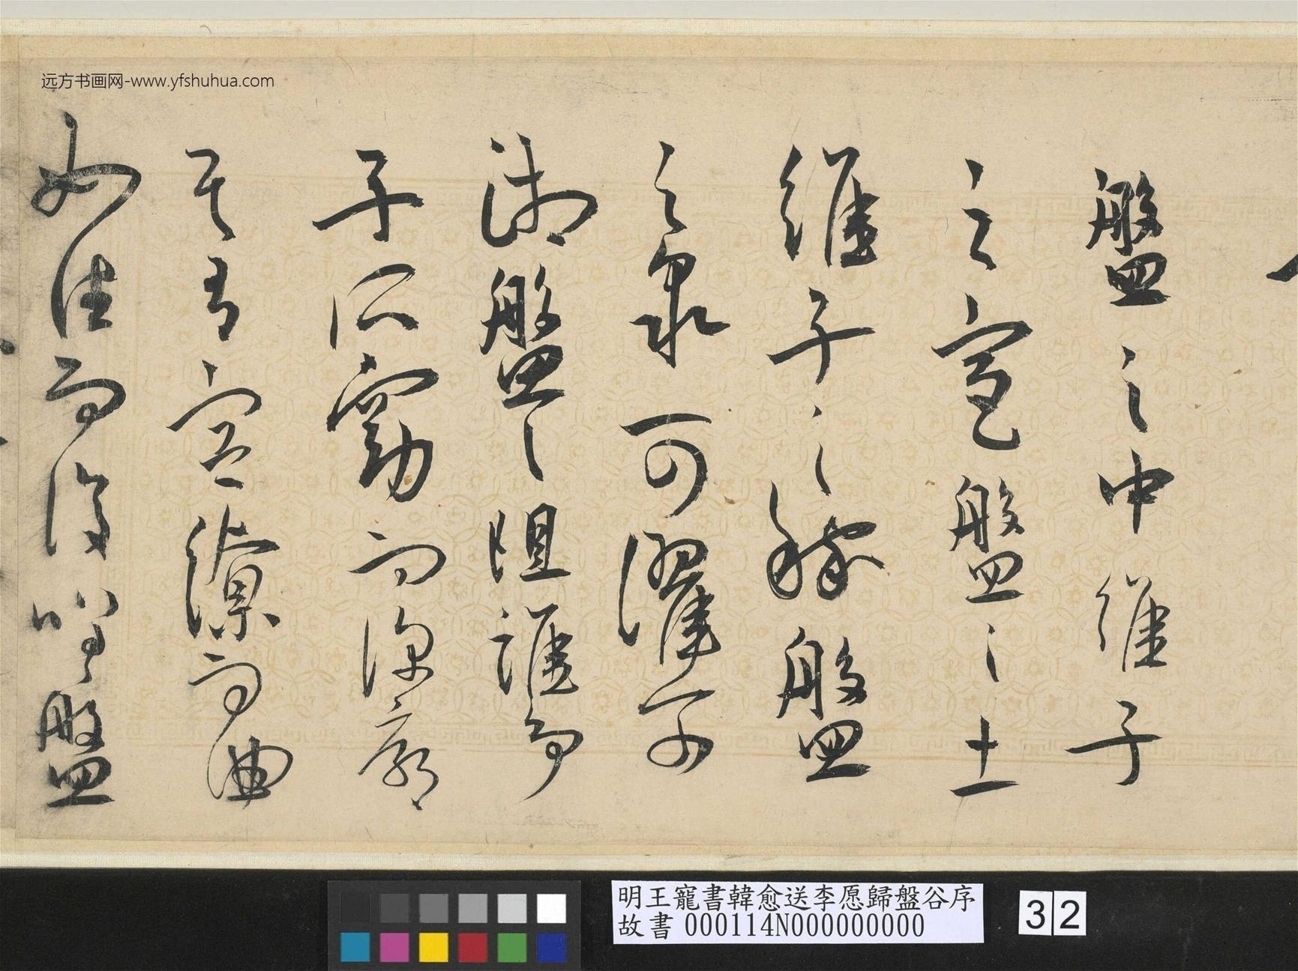 远方书画网-www.yfshuhua.com
盤之中維子
之宮盤之土
維子之稼盤
之泉可濯可
湘盤之阻誰爭
子所窈而深廓
其有容繚而曲
如往而復嗟盤
明王寵書韓愈送李愿歸盤谷序
故書 000114N000000000
32